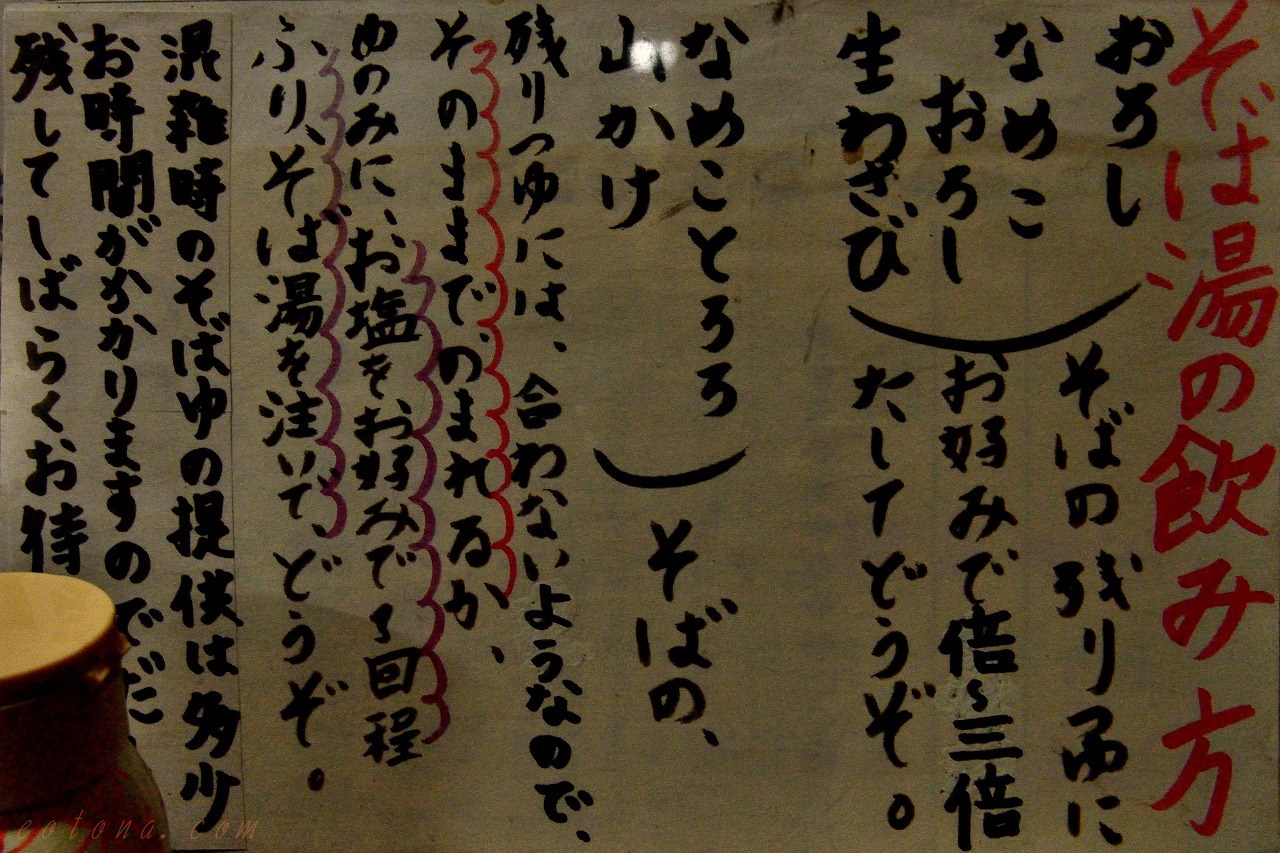 そば湯の飲み方
おろし
なめこ
おろし
生わさび
そばの残りつゆに
お好みで倍〜三倍
たしてどうぞ。
なめことろろ
山かけ
そばの、
残りつゆには、合わないようなので、
そのままでのまれるか、
ゆのみに、お塩を、お好みで3回程
ふり、そば湯を注いで、どうぞ。
混雑時のそばゆの提供は多少
お時間がかかりますので
残してしばらくお待
eotona.com